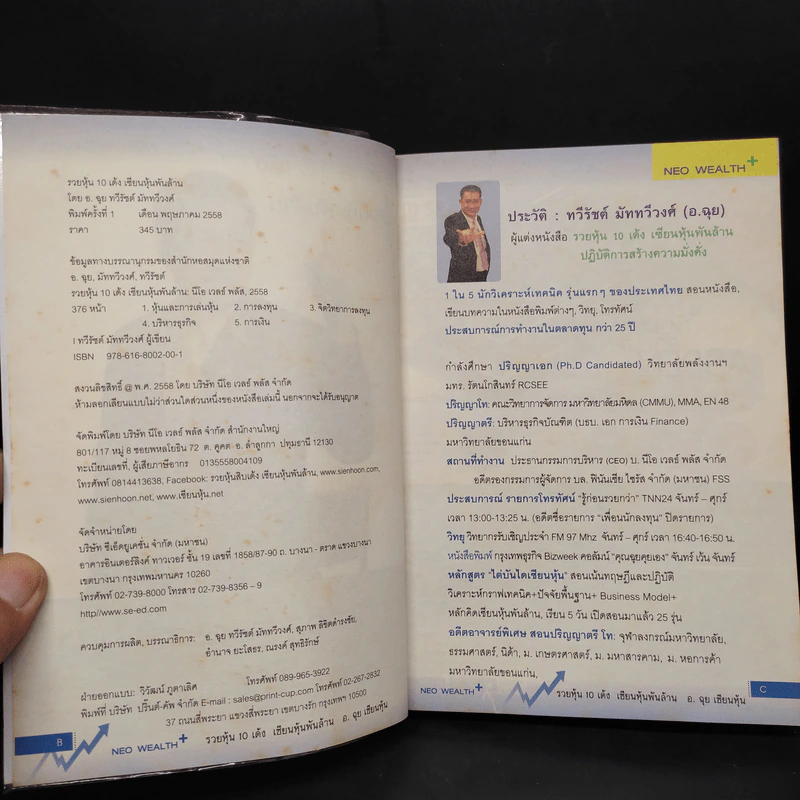 รวยหุ้น 10 เด้ง เซียนหุ้นพันล้าน
โดย อ. ฉุย ทวีรัชต์ มัททวีวงศ์
พิมพ์ครั้งที่ 1 เดือน พฤษภาคม 2558
ราคา 345 บาท
ข้อมูลทางบรรณานุกรมของสำนักหอสมุดแห่งชาติ
อ. ฉุย, มัททวีวงศ์, ทวีรัชต์
รวยหุ้น 10 เด้ง เซียนหุ้นพันล้าน: นีโอ เวลธ์ พลัส, 2558
376 หน้า 1. หุ้นและการเล่นหุ้น 2. การลงทุน 3. จิตวิทยาการลงทุน
4. บริหารธุรกิจ 5. การเงิน
I ทวีรัชต์ มัททวีวงศ์ ผู้เขียน
ISBN 978-616-8002-00-1
สงวนลิขสิทธิ์ @ พ.ศ. 2558 โดย บริษัท นีโอ เวลธ์ พลัส จำกัด
ห้ามลอกเลียนแบบไม่ว่าส่วนใดส่วนหนึ่งของหนังสือเล่มนี้ นอกจากจะได้รับอนุญาต
จัดพิมพ์โดย บริษัท นีโอ เวลธ์ พลัส จำกัด สำนักงานใหญ่
801/117 หมู่ 8 ซอยพหลโยธิน 72 ต. คูคต อ. ลำลูกกา ปทุมธานี 12130
ทะเบียนเลขที่, ผู้เสียภาษีอากร 0135558004109
โทรศัพท์ 0814413638, Facebook: รวยหุ้นสิบเด้ง เซียนหุ้นพันล้าน, www.sienhoon.com,
www.sienhoon.net, www.เซียนหุ้น.net
จัดจำหน่ายโดย
บริษัท ซีเอ็ดยูเคชั่น จำกัด (มหาชน)
อาคารอินเตอร์ลิงค์ ทาวเวอร์ ชั้น 19 เลขที่ 1858/87-90 ถ. บางนา - ตราด แขวงบางนา
เขตบางนา กรุงเทพมหานคร 10260
โทรศัพท์ 02-739-8000 โทรสาร 02-739-8356 – 9
http//www.se-ed.com
ควบคุมการผลิต, บรรณาธิการ: อ. ฉุย ทวีรัชต์ มัททวีวงศ์, สุภาพ ลิขิตดำรงชัย,
อำนาจ ยะโสธร, ณรงค์ สุทธิรักษ์
โทรศัพท์ 089-965-3922
ฝ่ายออกแบบ: วิวัฒน์ ภูตาเลิศ
พิมพ์ที่ บริษัท ปริ้นต์-คัพ จำกัด E-mail : sales@print-cup.com โทรศัพท์ 02-267-2832
37 ถนนสี่พระยา แขวงสี่พระยา เขตบางรัก กรุงเทพฯ 10500
B NEO WEALTH+ รวยหุ้น 10 เด้ง เซียนหุ้นพันล้าน อ. ฉุย เซียนหุ้น
NEO WEALTH+
ประวัติ : ทวีรัชต์ มัททวีวงศ์ (อ.ฉุย)
ผู้แต่งหนังสือ รวยหุ้น 10 เด้ง เซียนหุ้นพันล้าน
ปฏิบัติการสร้างความมั่งคั่ง
1 ใน 5 นักวิเคราะห์เทคนิค รุ่นแรกๆ ของประเทศไทย สอนหนังสือ,
เขียนบทความในหนังสือพิมพ์ต่างๆ, วิทยุ, โทรทัศน์
ประสบการณ์การทำงานในตลาดทุน กว่า 25 ปี
กำลังศึกษา ปริญญาเอก (Ph.D Candidated) วิทยาลัยพลังงานฯ
มทร. รัตนโกสินทร์ RCSEE
ปริญญาโท: คณะวิทยาการจัดการ มหาวิทยาลัยมหิดล (CMMU), MMA, EN 48
ปริญญาตรี: บริหารธุรกิจบัณฑิต (บธบ. เอก การเงิน Finance)
มหาวิทยาลัยขอนแก่น
สถานที่ทำงาน ประธานกรรมการบริหาร (CEO) บ. นีโอ เวลธ์ พลัส จำกัด
อดีตรองกรรมการผู้จัดการ บล. ฟินันเซีย ไซรัส จำกัด (มหาชน) FSS
ประสบการณ์ รายการโทรทัศน์ “รู้ก่อนรวยกว่า” TNN24 จันทร์ – ศุกร์
เวลา 13:00-13:25 น. (อดีตชื่อรายการ “เพื่อนนักลงทุน” ปิดรายการ)
วิทยุ วิทยากรรับเชิญประจำ FM 97 Mhz จันทร์ – ศุกร์ เวลา 16:40-16:50 น.
หนังสือพิมพ์ กรุงเทพธุรกิจ Bizweek คอลัมน์ “คุณฉุยคุยเอง” จันทร์ เว้น จันทร์
หลักสูตร “ไต่บันไดเซียนหุ้น” สอนเน้นทฤษฎีและปฏิบัติ
วิเคราะห์กราฟเทคนิค+ปัจจัยพื้นฐาน+ Business Model+
หลักคิดเซียนหุ้นพันล้าน, เรียน 5 วัน เปิดสอนมาแล้ว 25 รุ่น
อดีตอาจารย์พิเศษ สอนปริญญาตรี โท: จุฬาลงกรณ์มหาวิทยาลัย,
ธรรมศาสตร์, นิด้า, ม. เกษตรศาสตร์, ม. มหาสารคาม, ม. หอการค้า
มหาวิทยาลัยขอนแก่น,
NEO WEALTH+ รวยหุ้น 10 เด้ง เซียนหุ้นพันล้าน อ. ฉุย เซียนหุ้น C